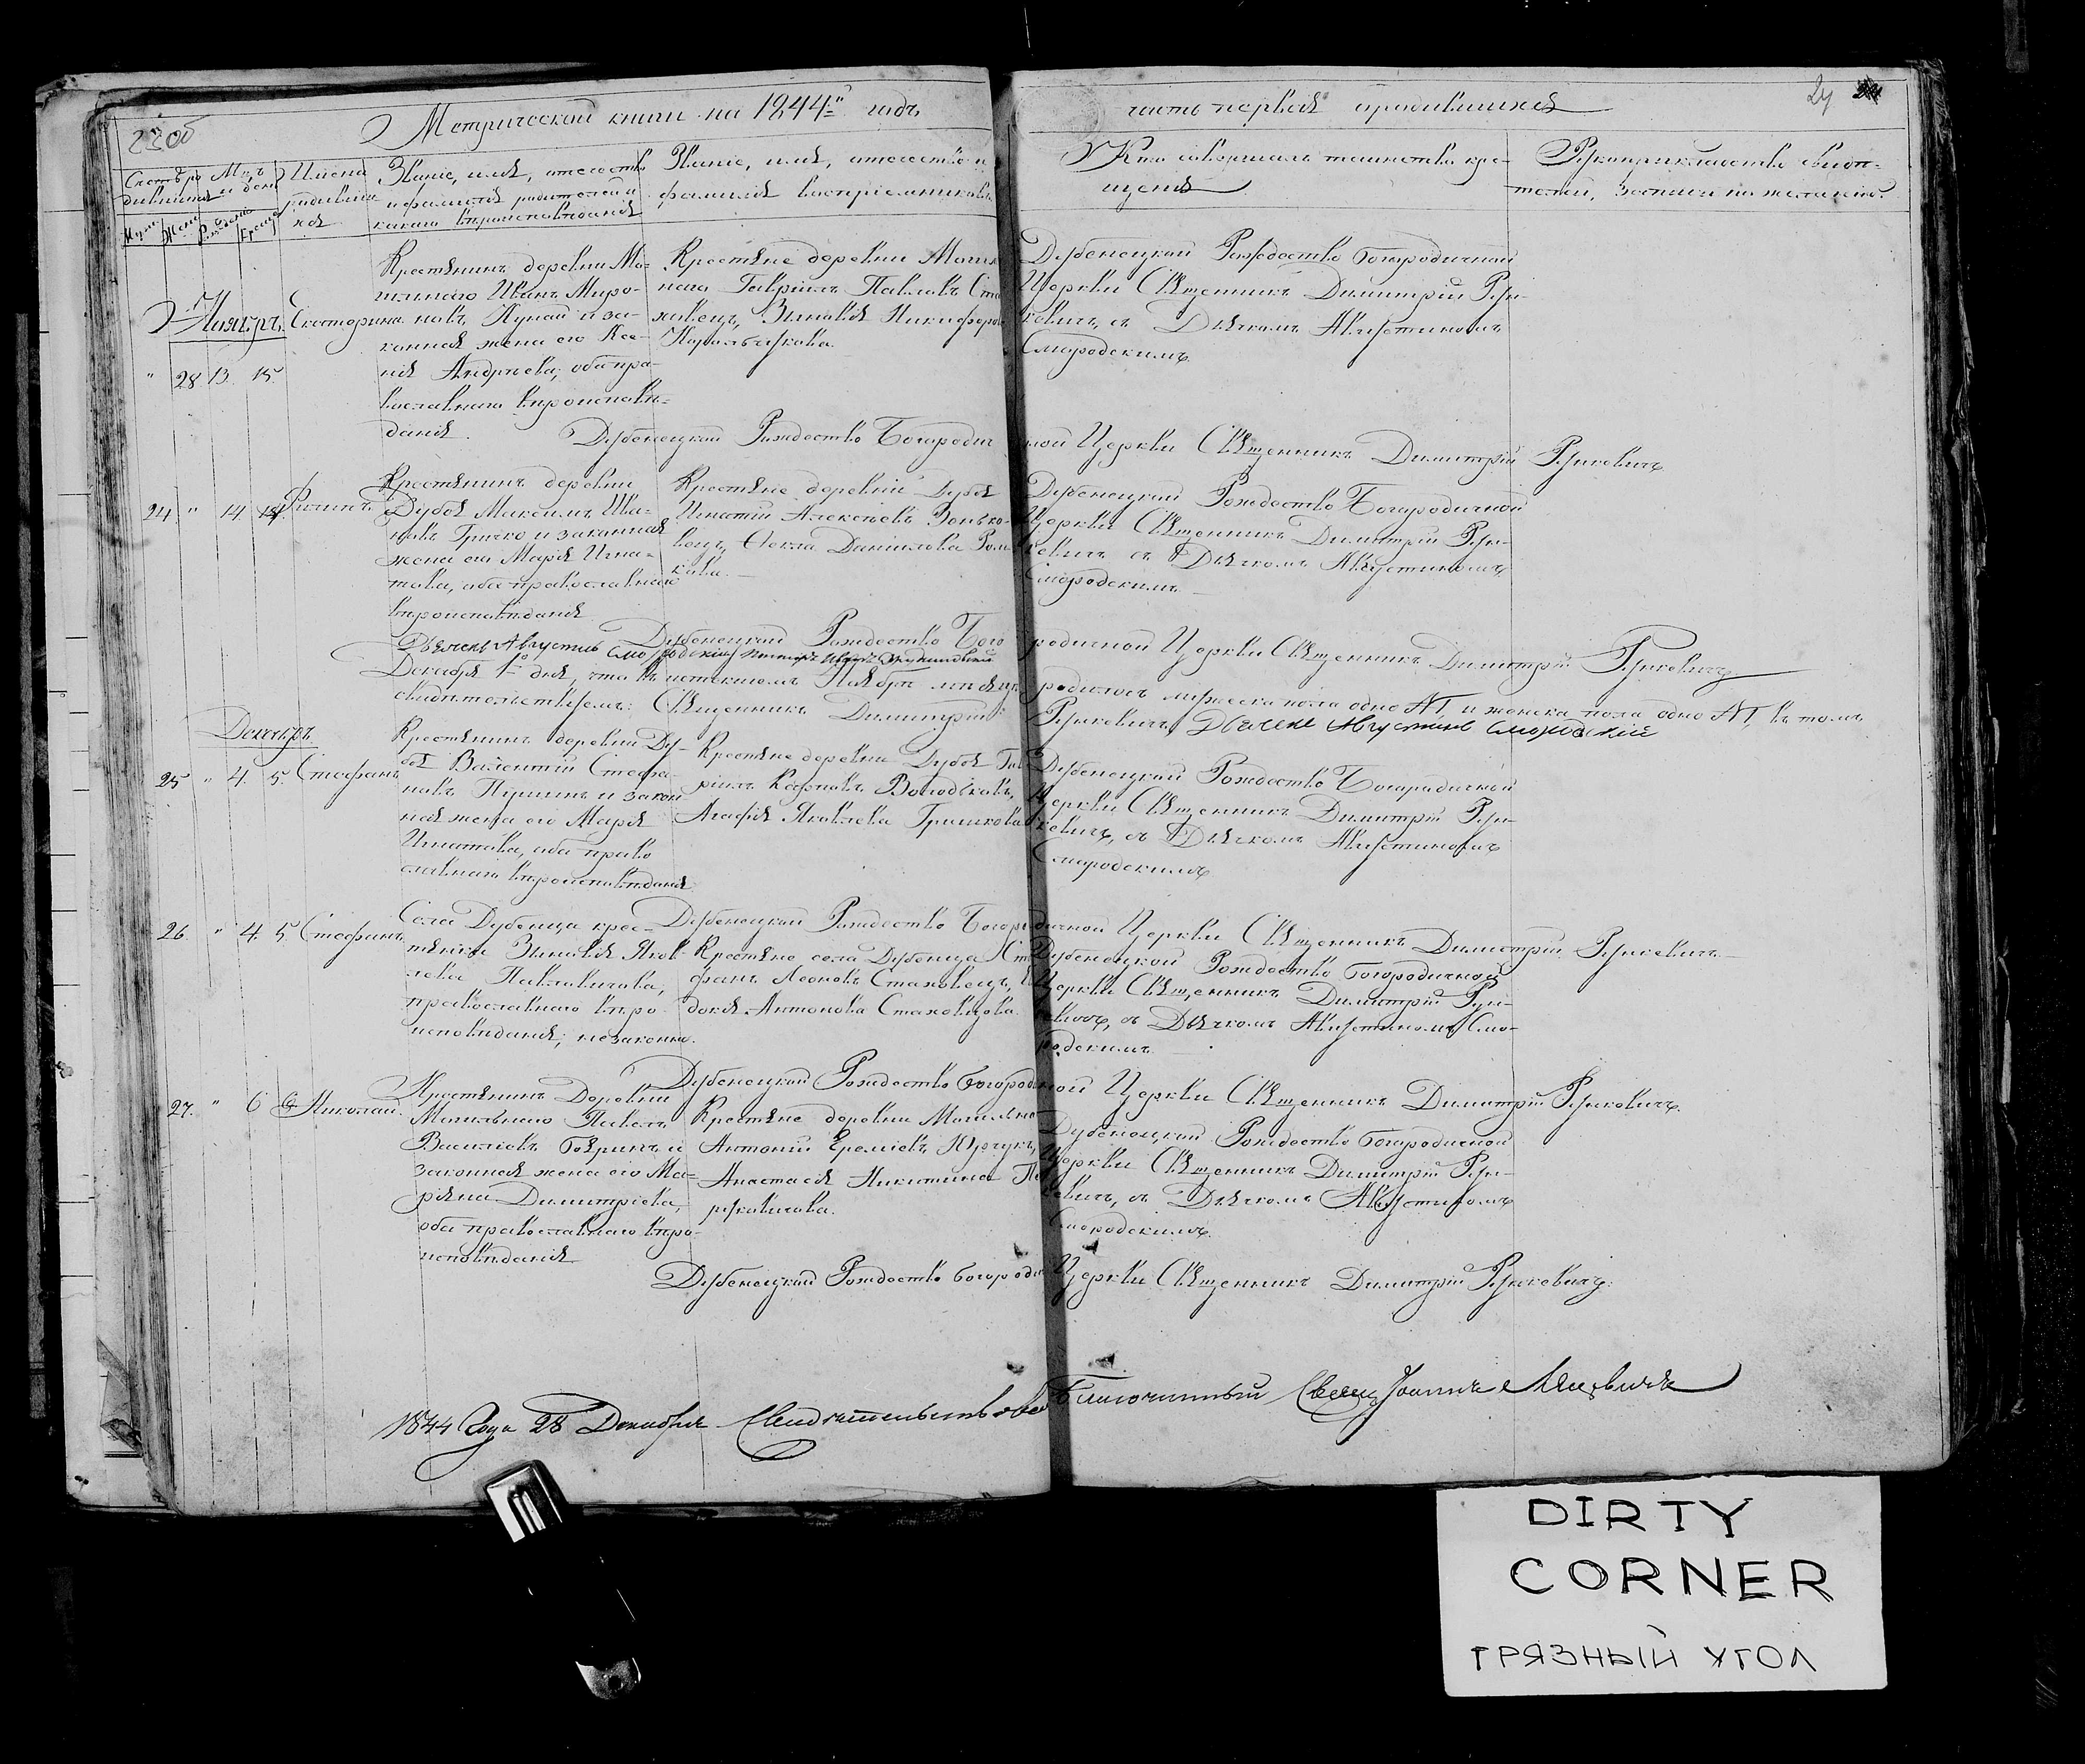 23об
Метрической книги на 1844й годъ
часть первая о родившихся
24
Счетъ ро-
дившихся
Мужес.
Женс.
Мѣс.
и день
Рожденія
Крещ.
Имена
родивших
ся
Званіе, имя, отечество
и фамилія родителей и
какого вѣроисповѣданія
Званіе, имя, отечество и
фамилія воспріемниковъ
Кто совершалъ таинство кре-
щенія
Рукоприкладство свидѣ-
телей, записи по желанію.
Ноябрь
" 28 13. 15.
Екатерина
Крестьянинъ деревни Мо-
гильного Иванъ Миро-
новъ Лунай и за-
конная жена его Ксе-
нія Андреева, оба пра-
вославнаго вѣроисповѣ-
данія.
Крестьяне деревни Могиль
наго Гавріилъ Павловъ
Зиновія Никифоров
Дубенецкой Рождество Богородичной
Церкви Священникъ Димитрій Рун-
кевичъ, съ Дьячкомъ Августиномъ
Смородскимъ
Дубенецкой Рождество Богородич
ной Церкви Священникъ Димитрій Рункевичъ
24 " 14. 14.
Филипъ
Крестьянинъ деревни
Дубоя Максимъ Ива-
новъ Гричко и законная
жена его Марія Игна-
това, оба православнаго
вѣроисповѣданія
Крестьяне деревни Дубоя
Игнатій Алексѣевъ Зенько-
вецъ, Ѳекла Даніилова Ром
кова.
Дубенецкой Рождество Богородичной
Церкви Священникъ Димитрій Рун-
кевичъ съ Дьячкомъ Августиномъ
Смородскимъ
Дубенецкой Рождество Бого
родичной Церкви Священникъ Димитрій Рункевичъ
Дьячекъ Августинъ Смородскій
Декабря 1го дня, что въ истекшемъ Ноябрѣ мѣсяцѣ
родилось мужеска пола одно №1, и женска пола одно №1, въ томъ
свидѣтельствуемъ: Священникъ Димитрій
Рункевичъ Дьячекъ Августинъ Смородскій
Декабрь
25 " 4. 5.
Стефанъ
Крестьянинъ деревни Ду-
боя Валентій Стефа-
новъ и закон
ная жена его Марія
Игнатова, оба право
славнаго вѣроисповѣданія
Крестьяне деревни Дубоя Гав
ріилъ Карповъ
Агафія Яковлева Гришкова
Дубенецкой Рождество Богородичной
Церкви Священникъ Димитрій Рун-
кевичъ, съ Дьячкомъ Августиномъ
Смородскимъ
Дубенецкой Рождество Богоро
дичной Церкви Священникъ Димитрій Рункевичъ
26. " 4. 5.
Стефанъ
Села Дубенца крес-
тьянка Зиновія Яков
лева Павловичова,
православнаго вѣро
исповѣданія, незаконно.
Крестьяне села Дубенца Сте
фанъ Леоновъ Стаховецъ, Ев
докія Антонова Стаховцова
Дубенецкой Рождество Богородичной
Церкви Священникъ Димитрій Рун-
кевичъ, съ Дьячкомъ Августиномъ Смо-
родскимъ
Дубенецкой Рождество Богородич
ной Церкви Священникъ Димитрій Рункевичъ
27. " 6 6
Николай.
Крестьянинъ Деревни
Могильного Павелъ
Василіевъ Бояринъ и
законная жена его Ма-
ріяна Димитріева,
оба православнаго вѣро-
исповѣданія
Крестьяне деревни Могильно
Антоній Ереміевъ Юрчукъ,
Анастасія Никитина
Дубенецкой Рождество Богородичной
Церкви Священникъ Димитрій Рун-
кевичъ, съ Дьячкомъ Августиномъ
Смородскимъ.
Дубенецкой Рождество Богороди
Церкви Священникъ Димитрій Рункевичъ
1844 Года 28 Декабря Свидѣтельствовалъ
Благочинный Свящ Іоаннъ
DIRTY
CORNER
ГРЯЗНЫЙ УГОЛ